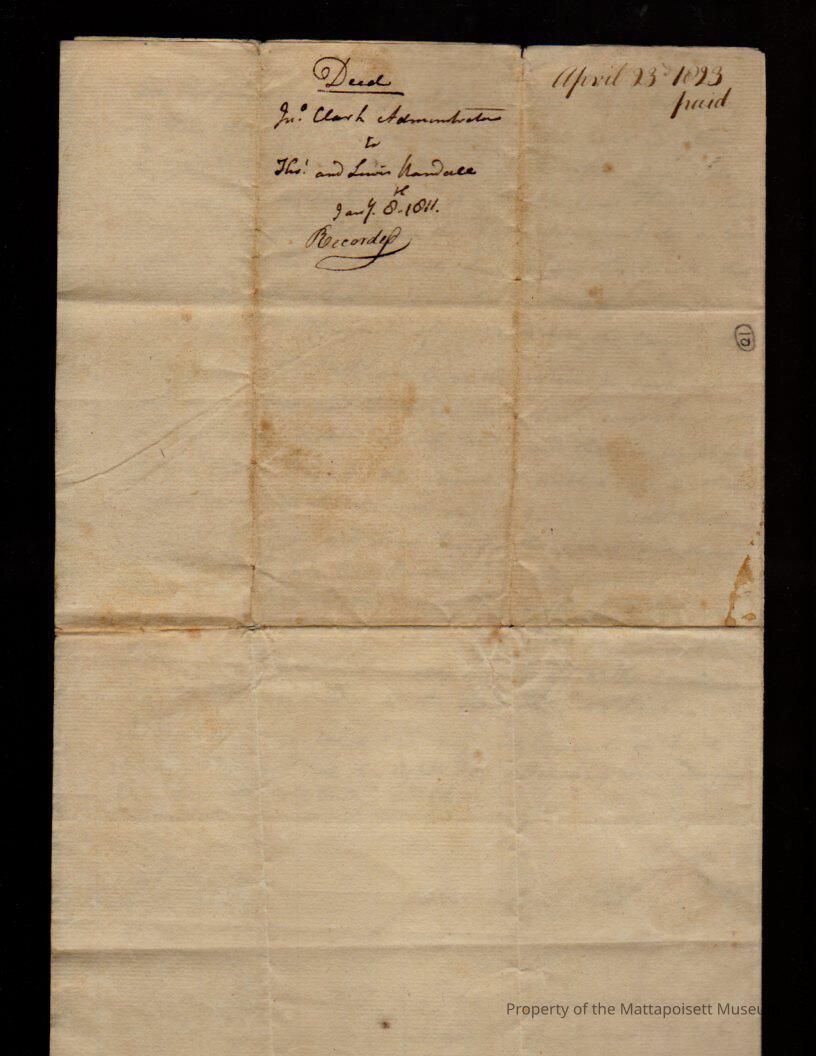 Deed
Jno. Clark Administrator
to
Thos. and Lewis Randall
Jany. 8th 1811.
Recorded
April 23d 1823
paid
10
Property of the Mattapoisett Museum